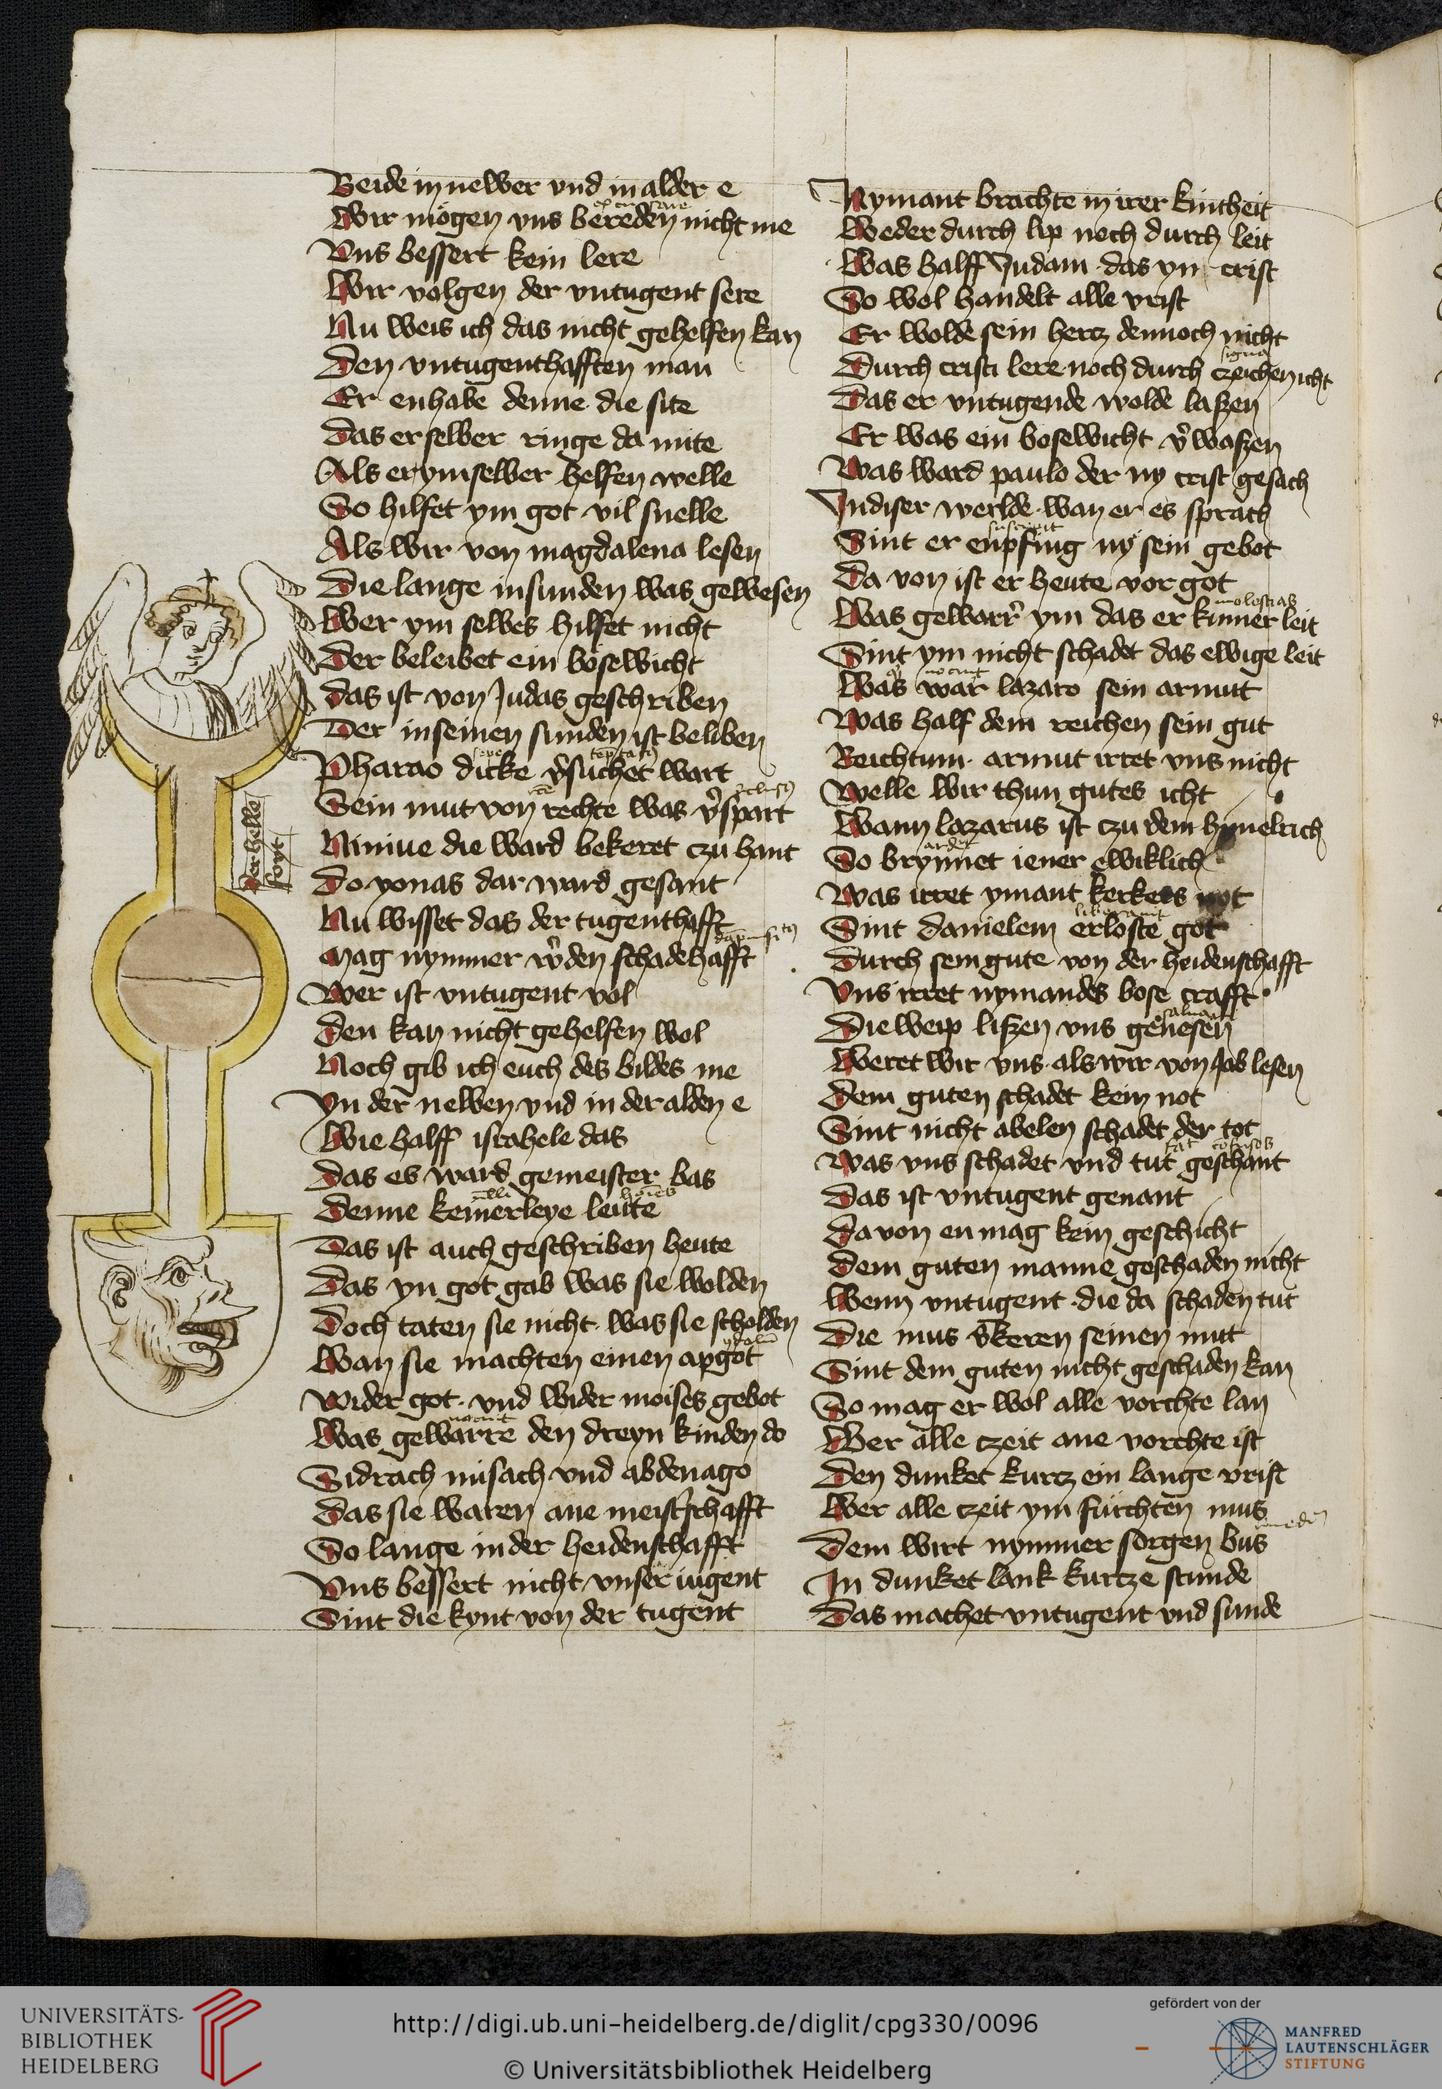 Beide in newer vnd in alder e
Wir mögen vns bereden nicht me
Vns bessert kein lere
Wir volgen der vntugent sere
Nu weis ich das nicht gehelfen kan
Den vntugenthafften man
Er enhabe denne die site
Das er selber ringe da mite
Als er ymselber helfen welle
So hilfet ym got vil snelle
Als wir von magdalena lesen
Die lange in sunden was gewesen
Wer ym selbes hilfet nicht
Der beleibet ein bösewicht
das ist von Judas geschriben
Der in seinen sunden ist beliben
Pharao dicke v̉suchet wart
Sein mut von rechte was v̉spart
Niniue die ward bekeret czu hant
Do yonas dar ward gesant
Nu wisset das der tugenthafft
Mag nymmer w̉den schadehafft
Wer ist vntugent vol
den kan nicht gehelfen wol
Noch gib ich euch des bildes me
Yn der newen vnd in der alden e
Wie halff israhele das
Das es ward gemeistert bas
Denne keinerleye leute
Das ist auch geschriben heute
Das yn got gab was sie wolden
Doch taten sie nicht was sie scholden
Wan sie machten einen apgot
Wider got vnd wider moises gebot
Was gewarre den dreyn kinden do
Sidrach misach vnd abdenago
das sie waren ane meist̉schafft
So lange in der heidenschafft
Vns bessert nicht vnser iugent
Sint die kynt von der tugent
Der helle
foyt
Nymant brachte in irer kintheit
Weder durch lip noch durch leit
Was halff Judam das yn crist
So wol handelt alle vrist
Er wolde sein hercz dennoch nicht
signa
Durch cristi lere noch durch czeichen icht
Das er vntugende wolde laszen
Er was ein bosewicht v̉waszen
Was ward paulo der ny crist gesach
In diser werlde wan er es sprach
suscepit
Sint er enpfing ny sein gebot
Da von ist er heute vor got
molestias
Was gewarr̉ ym das er kumer leit
Sint ym nicht schadet das ewige leit
nocuit
Was war lazaro sein armutt
Was half dem reichen sein gut
Reichtum armut irret vns nicht
Welle wir thun gutes icht
Wann lazarus ist czu dem hymelrich
ardet
So brynnet iener ewiklich
Was irret ymant kerkers not
Sint danielem erloste got
Durch sein gute von der heidenschafft
Vns irret nymandes bose crafft
Die weip liszen vns genesen
Weret wir vns als wir von Jab lesen
Dem guten schadet kein not
Sint nicht abelen schadet der tot
Was vns schadet vnd tut geschant
Das ist vntugent genant
Da von en mag kein geschicht
Dem guten manne geschaden nicht
Wenn vntugent die da schaden tut
Die mus v̉keren seinen mut
Sint dem guten nicht geschaden kan
So mag er wol alle vorchte lan
Wer alle czeit ane vorchte ist
Den dunket kurcz ein lange vrist
Wer alle czeit ym fürchten mus
Dem wirt nymmer sorgen bus
In dunket lank kurcze stunde
Das machet vntugent vnd sunde
UNIVERSITÄTS-
BIBLIOTHEK
HEIDELBERG
http://digi.ub.uni-heidelberg.de/diglit/cpg330/0096
© Universitätsbibliothek Heidelberg
gefördert von der
MANFRED
LAUTENSCHLÄGER
STIFTUNG